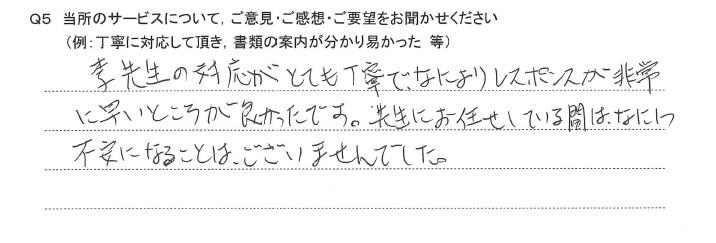 Q5 当所のサービスについて, ご意見・ご感想・ご要望をお聞かせください
(例:丁寧に対応して頂き, 書類の案内が分かり易かった 等)
李先生の対応がとても丁寧で、なによりレスポンスが非常
に早いところが良かったです。先生にお任せしている間は、なに1つ
不安になることは、ございませんでした。